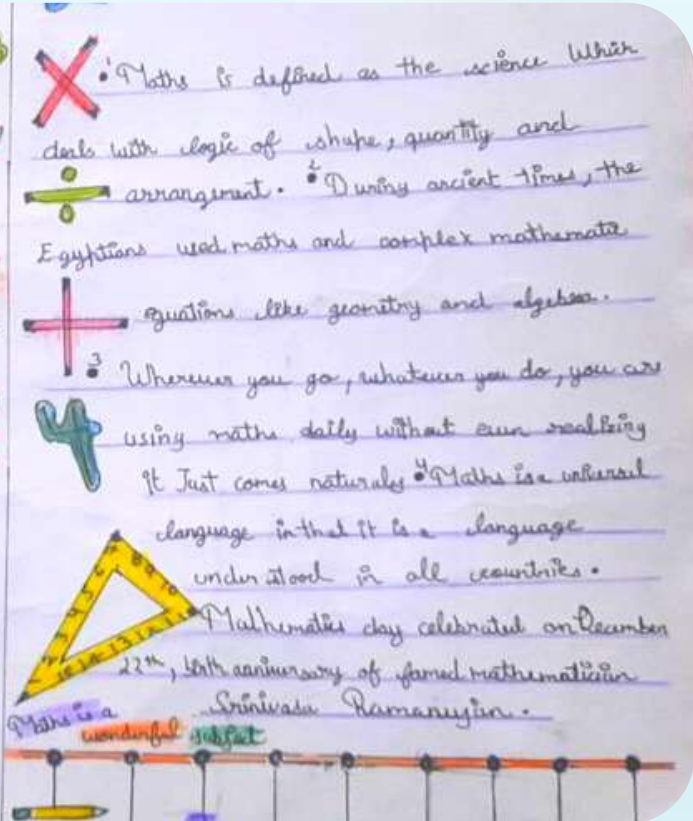 1 Maths is defined as the science Which
deals with logic of shape, quantity and
arrangement. 2 During ancient times, the
Egyptians used maths and complex mathematic
equations like geometry and algebra.
3 Wherever you go, whatever you do, you are
using maths daily without even realizing
it Just comes naturaly 4 Maths is a universal
language in that it is a language
understood in all countries.
Mathematics day celebrated on December
22th, birth anniversary of famed mathematician
Srinivasa Ramanujan.
Maths is a
wonderful subject